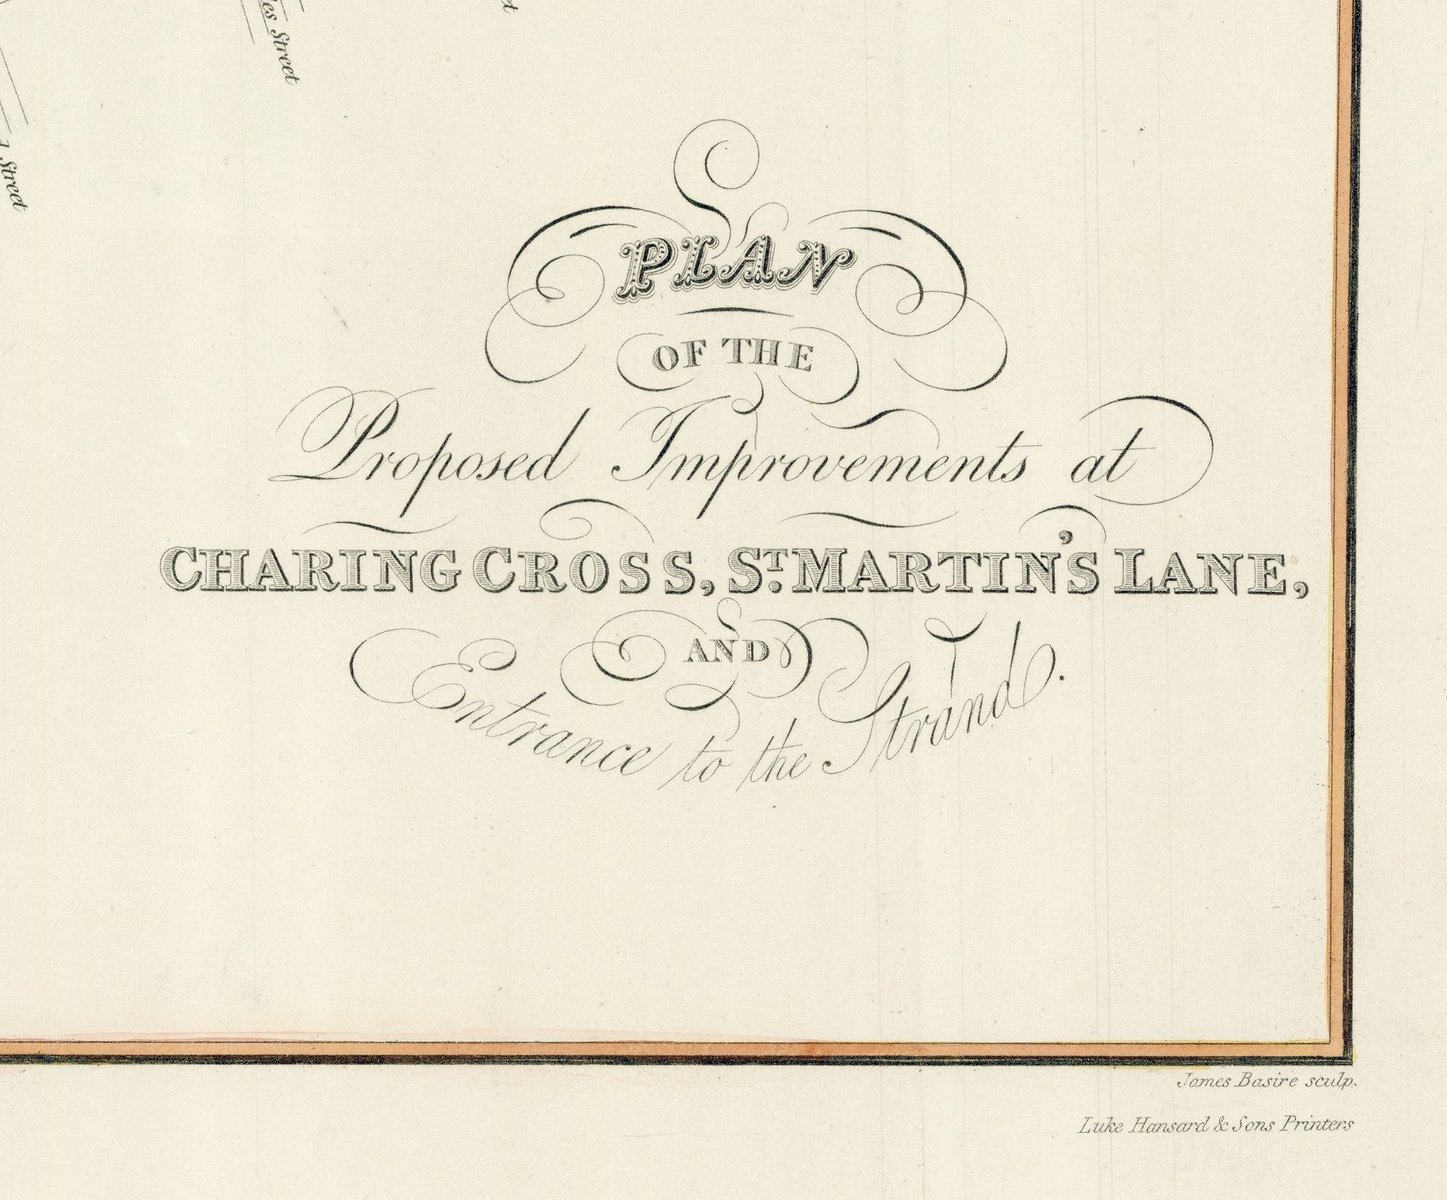 Street
Street
PLAN
OF THE
Proposed Improvements at
CHARING CROSS, ST. MARTIN'S LANE,
AND
Entrance to the Strand.
James Basire sculp.
Luke Hansard & Sons Printers